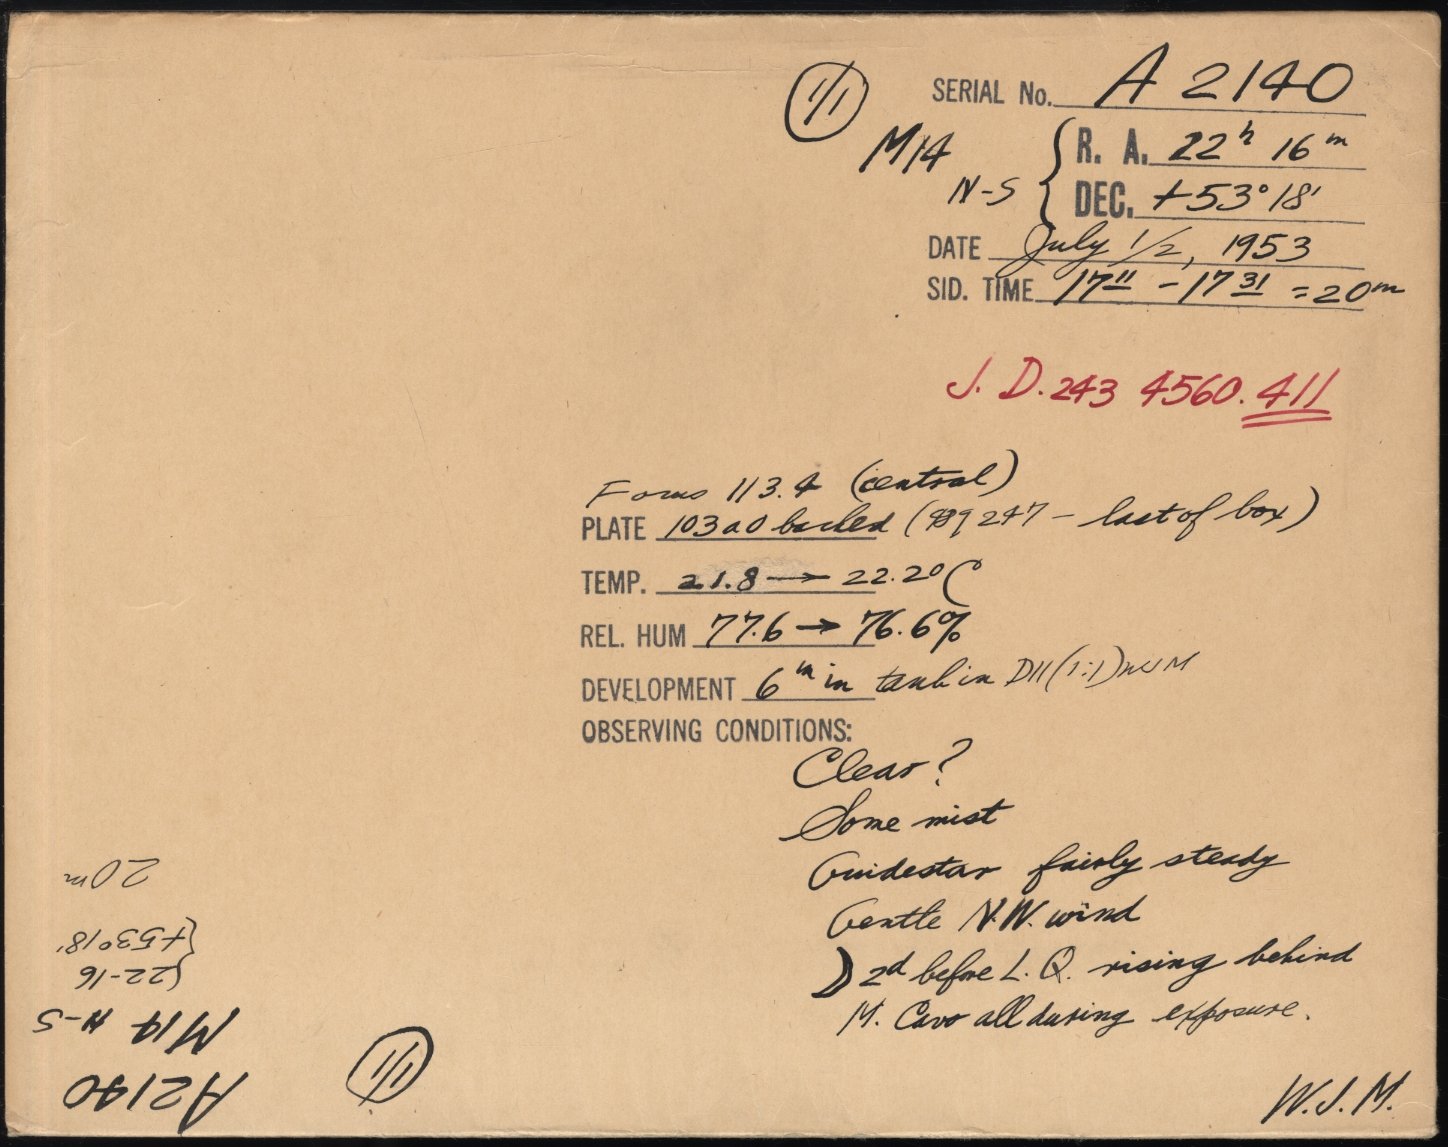 1/1
SERIAL No. A 2140
M14
N-S { R. A. 22h 16m
DEC. +53°18'
DATE July 1/2, 1953
SID. TIME 17 11 - 17 31 = 20m
J. D. 243 4560.411
Focus 113.4 (central)
PLATE 103a0 backed ( 247 - last of box)
TEMP. 21.8 → 22.2°C
REL. HUM 77.6 → 76.6%
DEVELOPMENT 6m in tank in D11 (1:1)
OBSERVING CONDITIONS:
Clear?
Some mist
Guidestar fairly steady
Gentle N.W. wind
2d before L. Q. rising behind
M. Cavo all during exposure.
W.J.M.
1/1
A2140
M14 N-S
{22-16
+53°18'
20m